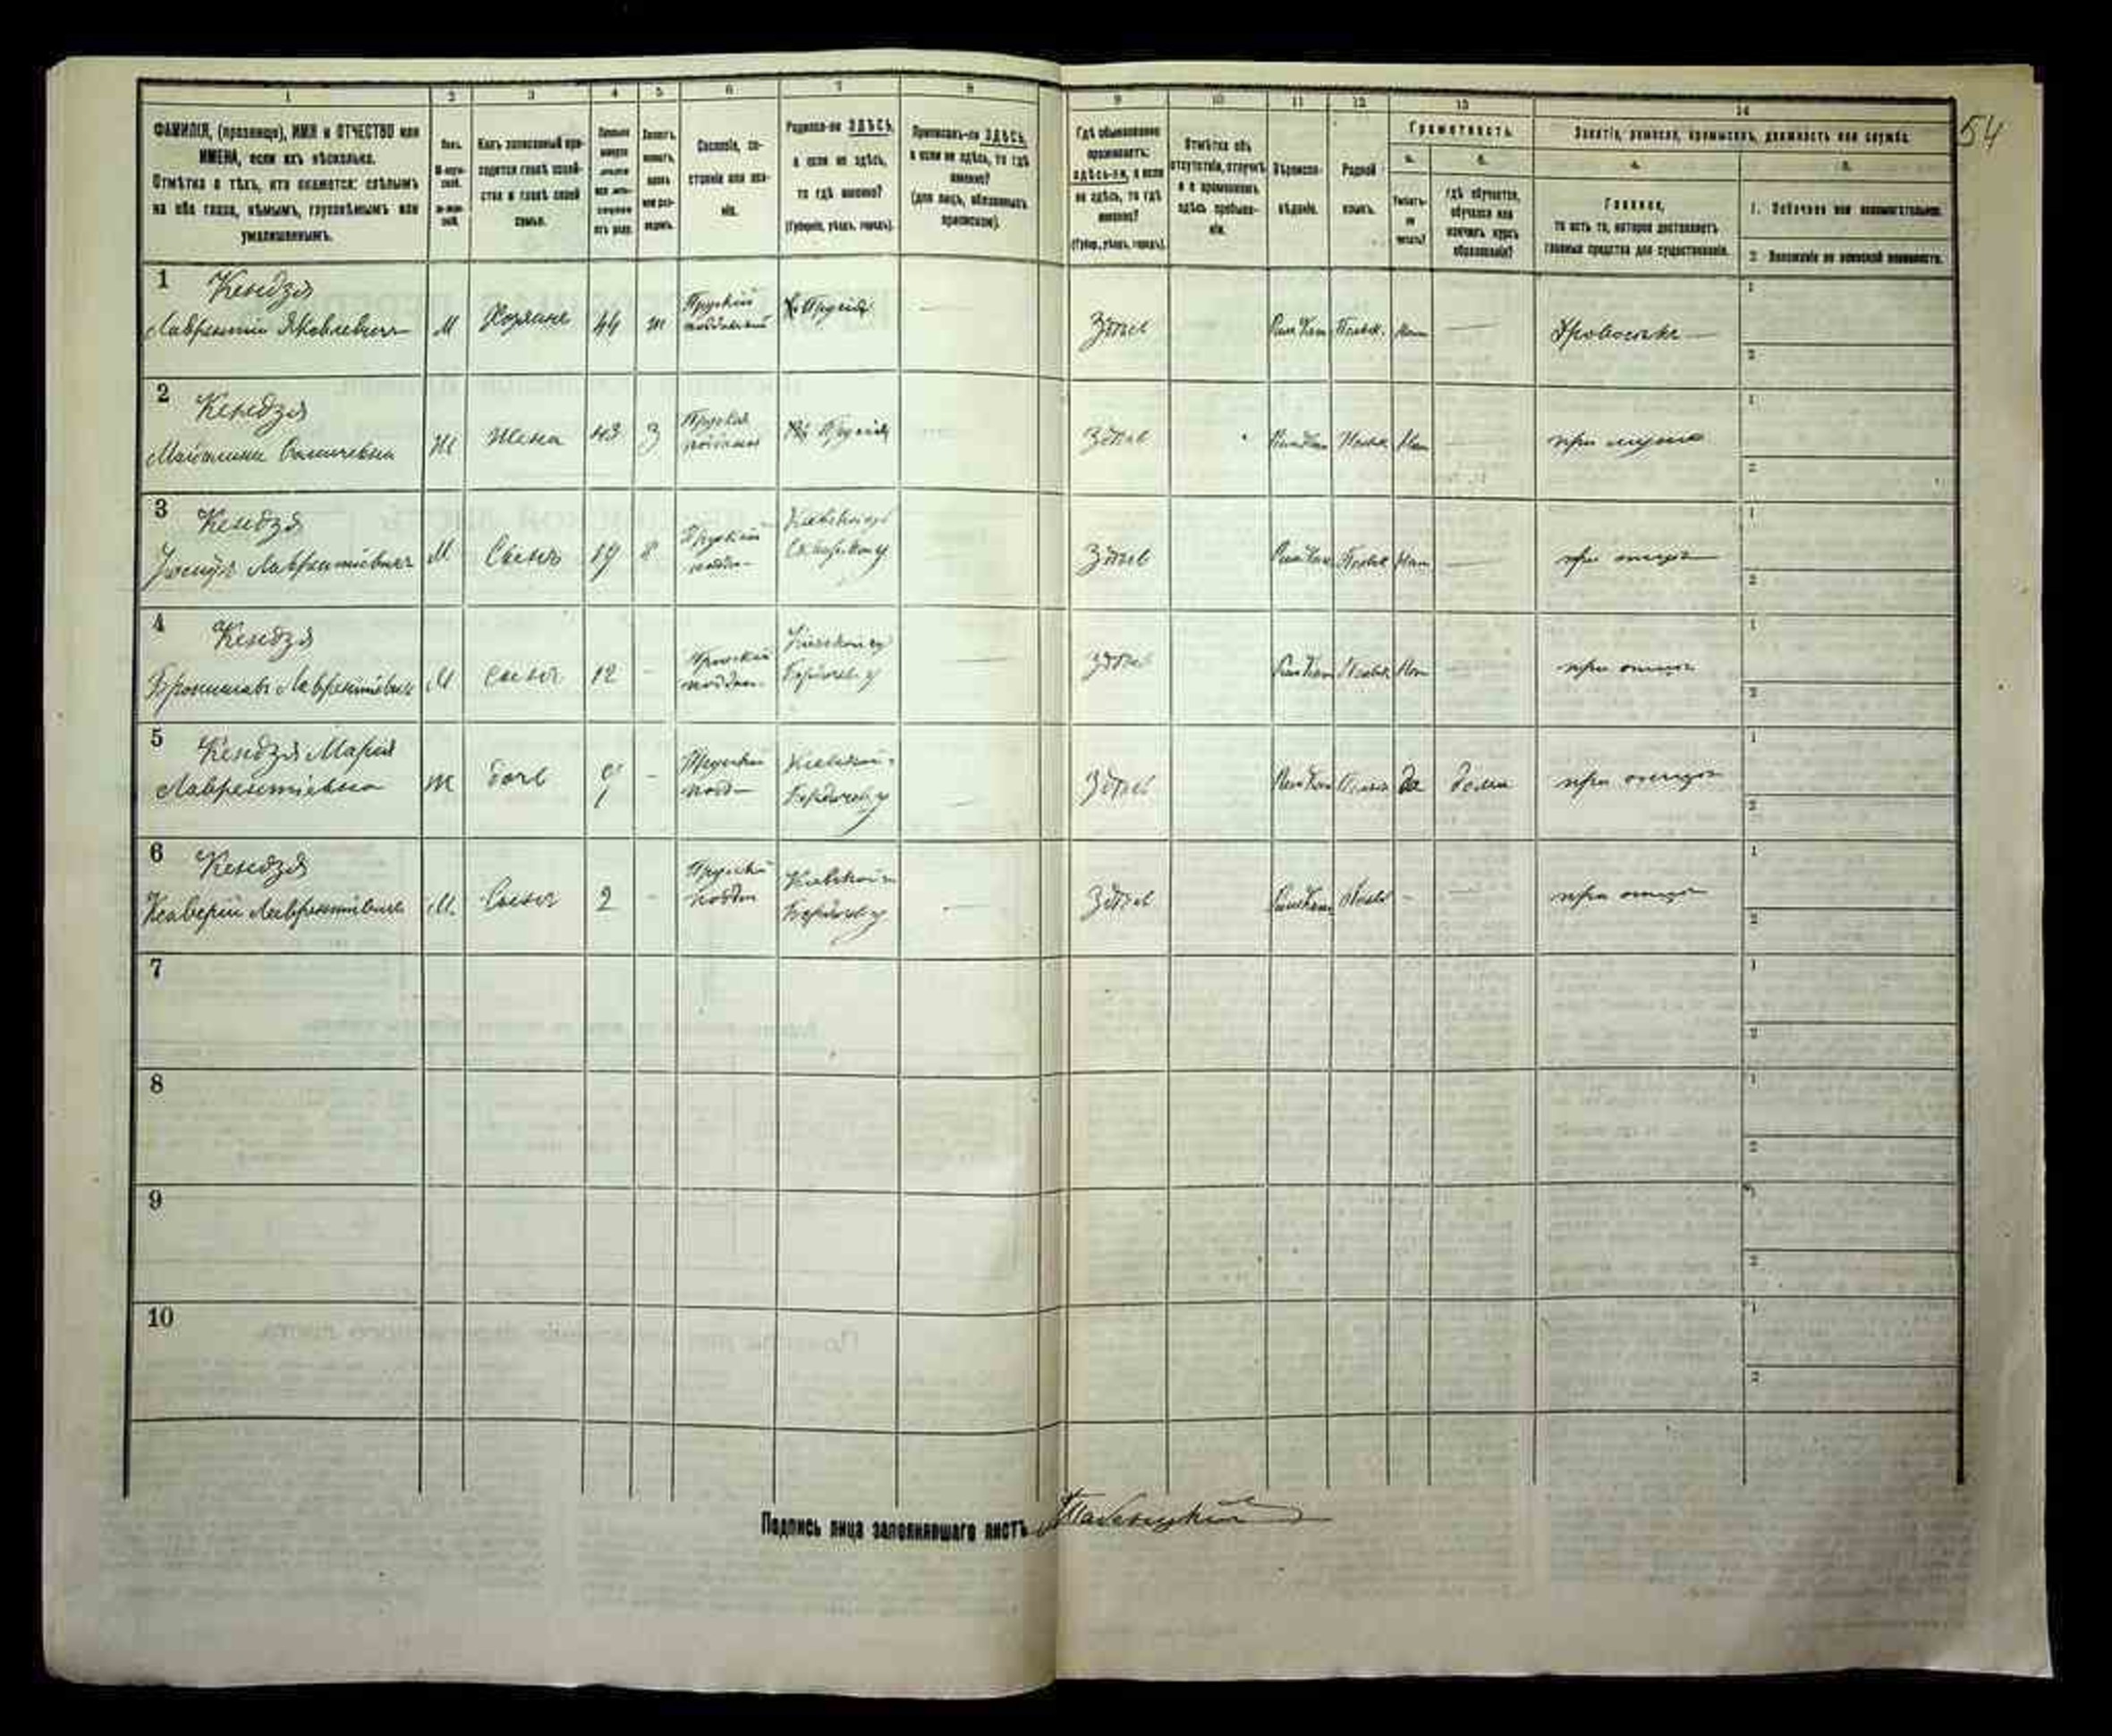 1 2 3 4 5 6 7 8 9 10 11 12 13 14
54
ФАМИЛІЯ, (прозвище), ИМЯ и ОТЧЕСТВО или
ИМЕНА, если ихъ нѣсколько.
Отмѣтка о тѣхъ, кто окажется: слѣпымъ
на оба глаза, нѣмымъ, глухонѣмымъ или
умалишеннымъ.
Полъ.
М-муж-
ской.
Ж-жен-
скій.
Какъ записанный при-
ходится главѣ хозяй-
ства и главѣ своей
семьи.
Сословіе, со-
стояніе или зва-
ніе.
Родился-ли ЗДѢСЬ,
а если не здѣсь,
то гдѣ именно?
(Губернія, уѣздъ, городъ).
Приписанъ-ли ЗДѢСЬ,
а если не здѣсь, то гдѣ
именно?
(для лицъ, обязанныхъ
припискою).
Гдѣ обыкновенно
проживаетъ:
здѣсь-ли, а если
не здѣсь, то гдѣ
именно?
(Губер., уѣздъ, городъ).
Отмѣтка объ
отсутствіи, отлучкѣ
и о временномъ
здѣсь пребыва-
ніи.
Вѣроиспо-
вѣданіе.
Родной
языкъ.
Грамотность.
а. б.
Умѣетъ-
ли
читать?
гдѣ обучается,
обучался или
кончилъ курсъ
образованія?
Занятіе, ремесло, промыселъ, должность или служба.
а. б.
Главное,
то есть то, которое доставляетъ
главныя средства для существованія.
1. Побочное или вспомогательное.
2. Положеніе по воинской повинности.
1 Кендзя
Лаврентій Яковлевичъ М Хозяинъ 44 ж Прускій подданный Пруссія Здѣсь Рим Кат Польск. Нет Дровосѣкъ
2 Кендзя
Ж Жена 43 З Пруссія Здѣсь Рим Кат Польск Нет при мужѣ
3 Кендзя
Іосифъ Лаврентіевичъ М Сынъ 19 Х Прускій поддан Кіевской г Здѣсь Рим Кат Польск Нет при отцѣ
4 Кендзя
Брониславъ Лаврентіевичъ М Сынъ 12 - Прускій поддан. Кіевской г Бердичев у Здѣсь Рим Кат Польск Нет при отцѣ
5 Кендзя Марія
Лаврентіевна Ж Дочь 9 - Прускій подд Кіевской г Бердичев у Здѣсь Рим Кат Польск Да дома при отцѣ
6 Кендзя
Ксаверій Лаврентіевичъ М. Сынъ 2 - Прускій поддан Кіевской г Бердичев у Здѣсь Рим Кат Польск - при отцѣ
7
8
9
10
Подпись лица заполнявшаго листъ